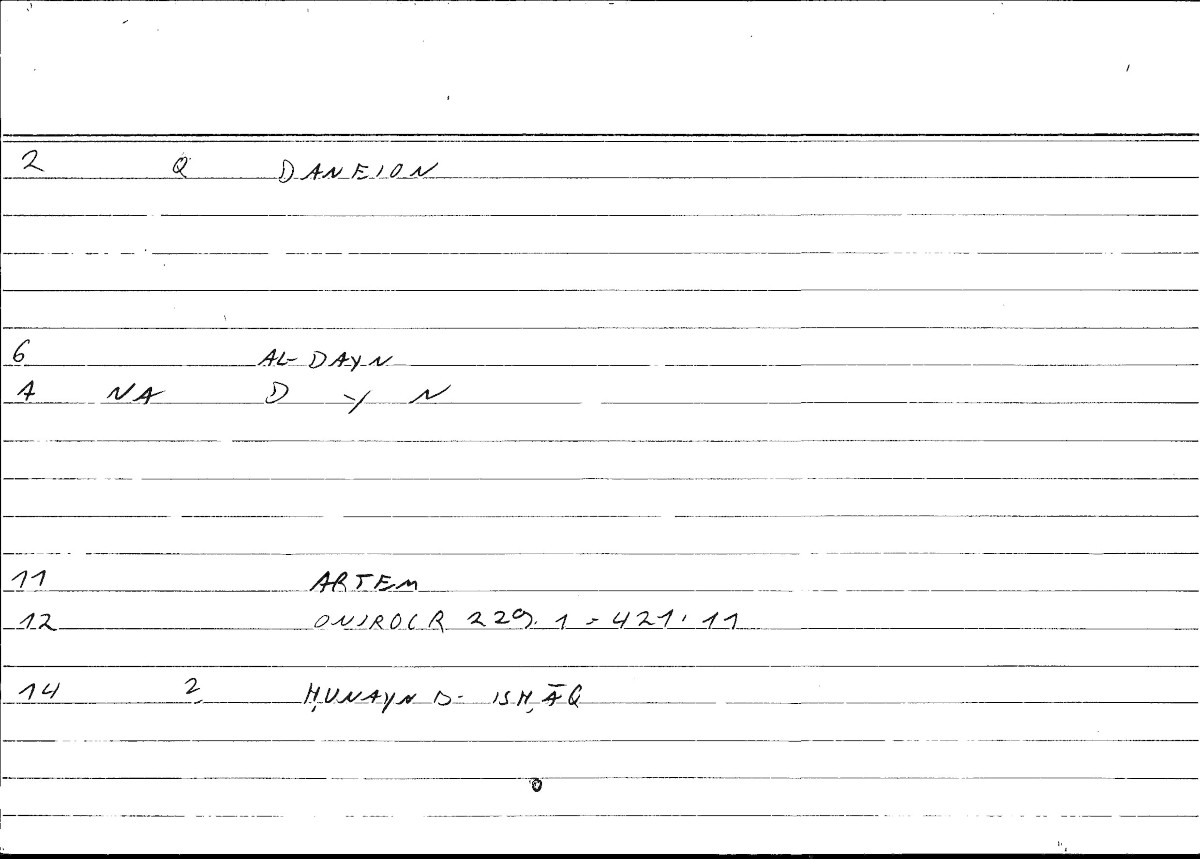 2 Q DANEION
6 AL-DAYN
A NA D Y N
11 ARTEM
12 ONIROCR 229.1 = 421.11
14 2 ḤUNAYN B- ISḤĀQ